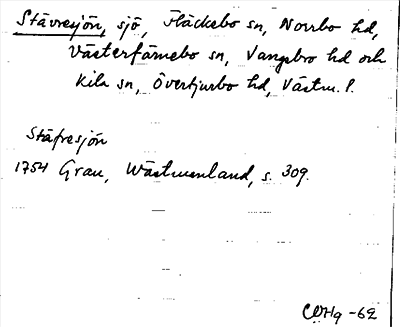 Stävresjön, sjö, Fläckebo sn, Norrbo hd,
Västerfärnebo sn, Vangsbro hd och
Kila sn, Övertjurbo hd, Västm. l.
Stäfresjön
1754 Grau, Wästmenland, s. 309.
COHq -62